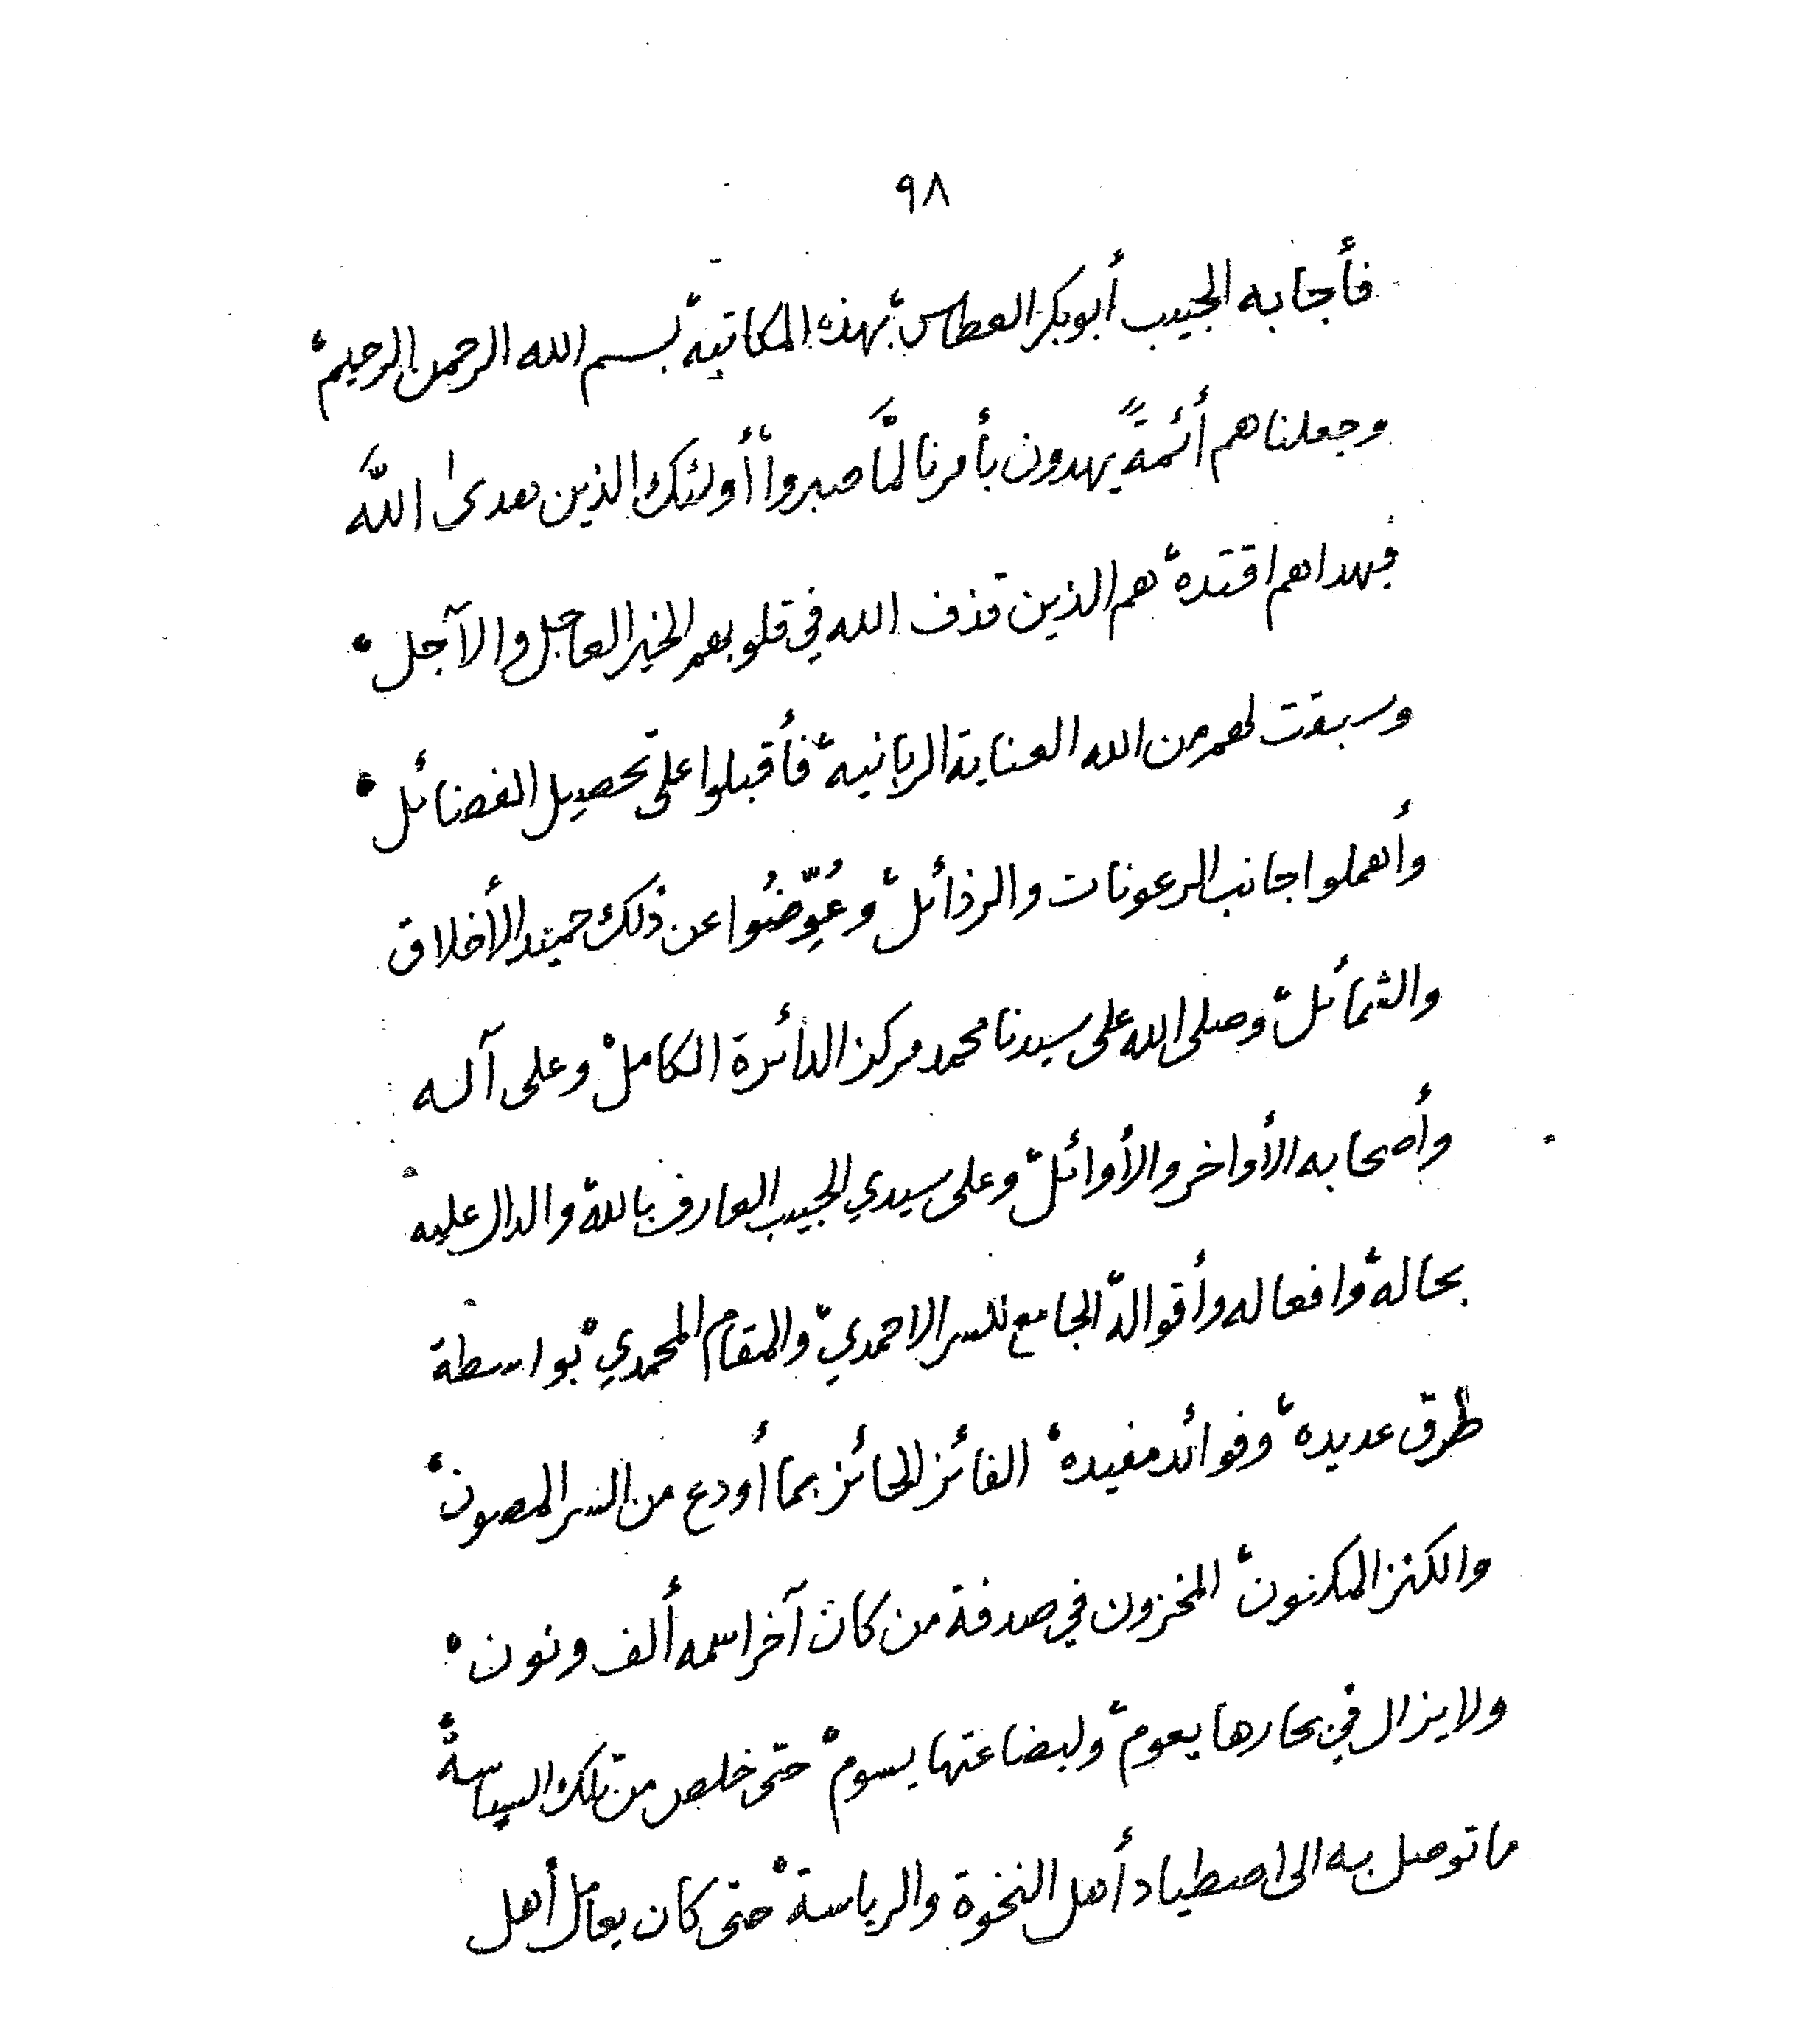 ٩٨
فأجابه الحبيب أبوبكر العطاس، بهذه المكاتبة، بسم الله الرحمن الرحيم،
وجعلناهم أئمةً يهدون بأمرنا لمَّا صبروا، أولئك الذين هدى اللَّه
فبهداهم اقتده، هم الذين قذف الله في قلوبهم الخير العاجل والآجل،
وسبقت لهم من الله العناية الربانية، فأقبلوا على تحصيل الفضائل،
وأهملوا جانب الرعونات والرذائل، وعُوِّضُوا عن ذلك حميد الأخلاق
والشمائل، وصلى الله على سيدنا محمد مركز الدائرة الكامل، وعلى آله
وأصحابه الأواخر والأوائل، وعلى سيدي الحبيب العارف بالله، والدال عليه
بحاله، وافعاله وأقواله، الجامع للسر الاحمدي، والمقام المحمدي، بواسطة
طرق عديده، وفوائد مفيده، الفائز الحائز بما أودع من السر المصون،
والكنز المكنون، المخزون في صدفة من كان آخر اسمه ألف ونون،
ولا يزال في بحارها يعوم، ولبضاعتها يسوم، حتى خلص من تلك السياسة،
ما توصل به الى اصطياد أهل النخوة والرياسة، حتى كان يعامل أهل